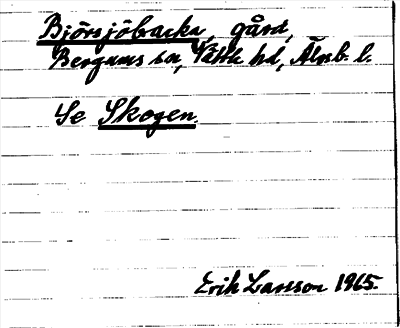 Björsjöbacka, gård,
Bergums sn, Vättle hd, Älvsb. l.
Se Skogen.
Erik Larsson 1965.